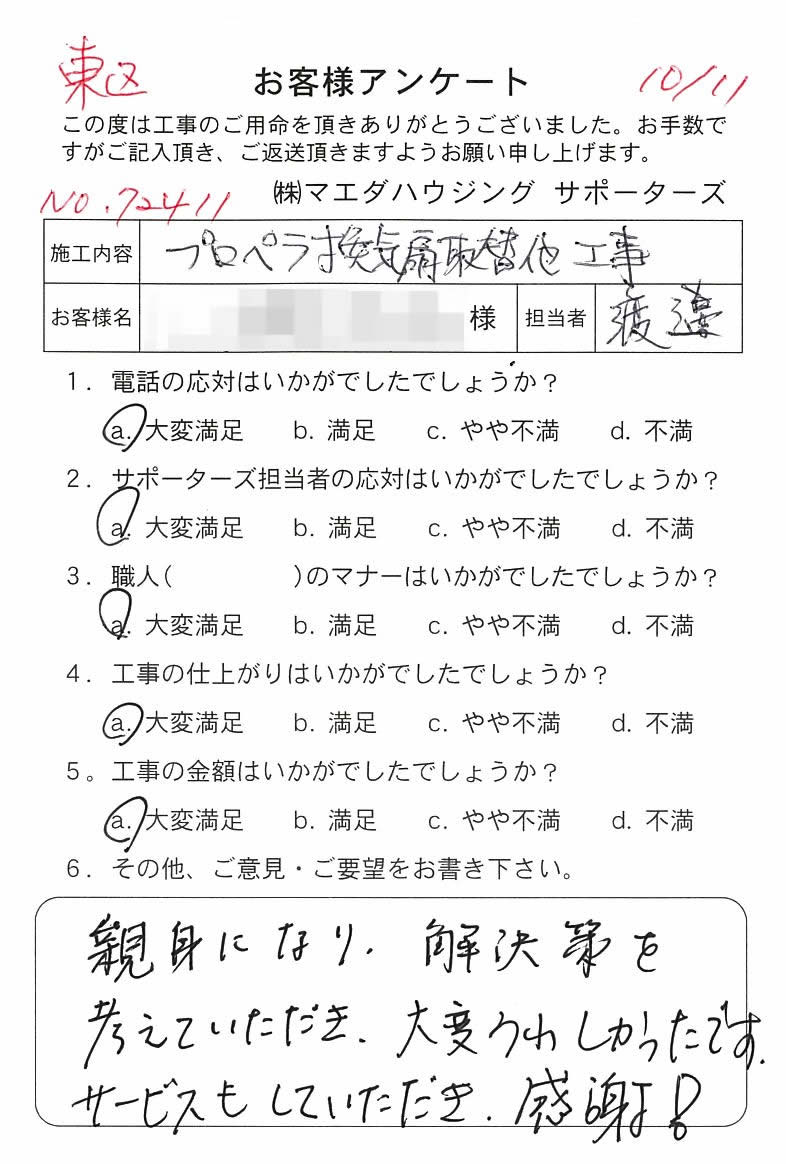 東区 お客様アンケート 10/11
この度は工事のご用命を頂きありがとうございました。お手数で
すがご記入頂き、ご返送頂きますようお願い申し上げます。
NO.72411 ㈱マエダハウジング サポーターズ
施工内容 プロペラ換気扇取替他工事
お客様名 様 担当者 渡邊
1. 電話の応対はいかがでしたでしょうか?
a. 大変満足 b. 満足 c. やや不満 d. 不満
2. サポーターズ担当者の応対はいかがでしたでしょうか?
a. 大変満足 b. 満足 c. やや不満 d. 不満
3. 職人( )のマナーはいかがでしたでしょうか?
a. 大変満足 b. 満足 c. やや不満 d. 不満
4. 工事の仕上がりはいかがでしたでしょうか?
a. 大変満足 b. 満足 c. やや不満 d. 不満
5。工事の金額はいかがでしたでしょうか?
a. 大変満足 b. 満足 c. やや不満 d. 不満
6. その他、ご意見・ご要望をお書き下さい。
親身になり、解決策を
考えていただき、大変うれしかったです。
サービスもしていただき、感謝!